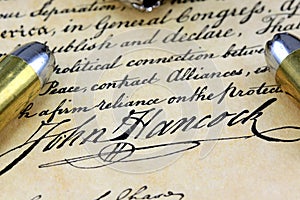 our Separation
America, in General Congress, A
Publish and declare, Tha
political connection betwee
Peace, contract Alliances, es
a firm reliance on the protec
John Hancock